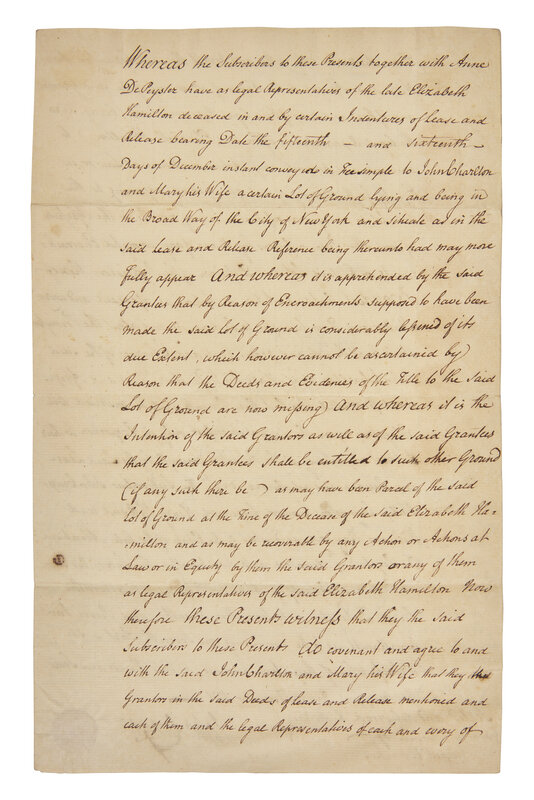 Whereas the Subscribers to these Presents together with Anne
DePeyster have as legal Representatives of the late Elizabeth
Hamilton deceased in and by certain Indentures of Lease and
Release bearing Date the fifteenth - and sixteenth -
Days of December instant conveyed in Fee simple to John Charlton
and Mary his Wife a certain Lot of Ground lying and being in
the Broad Way of the City of New York and situate as in the
said Lease and Release Reference being thereunto had may more
fully appear And whereas it is apprehended by the said
Grantees that by Reason of Encroachments supposed to have been
made the said Lot of Ground is considerably lessened of its
due Extent, which however cannot be ascertained by
Reason that the Deeds and Evidences of the Title to the said
Lot of Ground are now missing) And whereas it is the
Intention of the said Grantors as well as of the said Grantees
that the said Grantees shall be entitled to such other Ground
(if any such there be) as may have been Parcel of the said
Lot of Ground at the Time of the Decease of the said Elizabeth Ha-
-milton and as may be recoverable by any Action or Actions at
Law or in Equity by them the said Grantors or any of them
as legal Representatives of the said Elizabeth Hamilton Now
therefore these Presents witness that they the said
Subscribers to these Presents do covenant and agree to and
with the said John Charlton and Mary his Wife that they the
Grantors in the said Deeds of Lease and Release mentioned and
each of them and the legal Representatives of each and every of